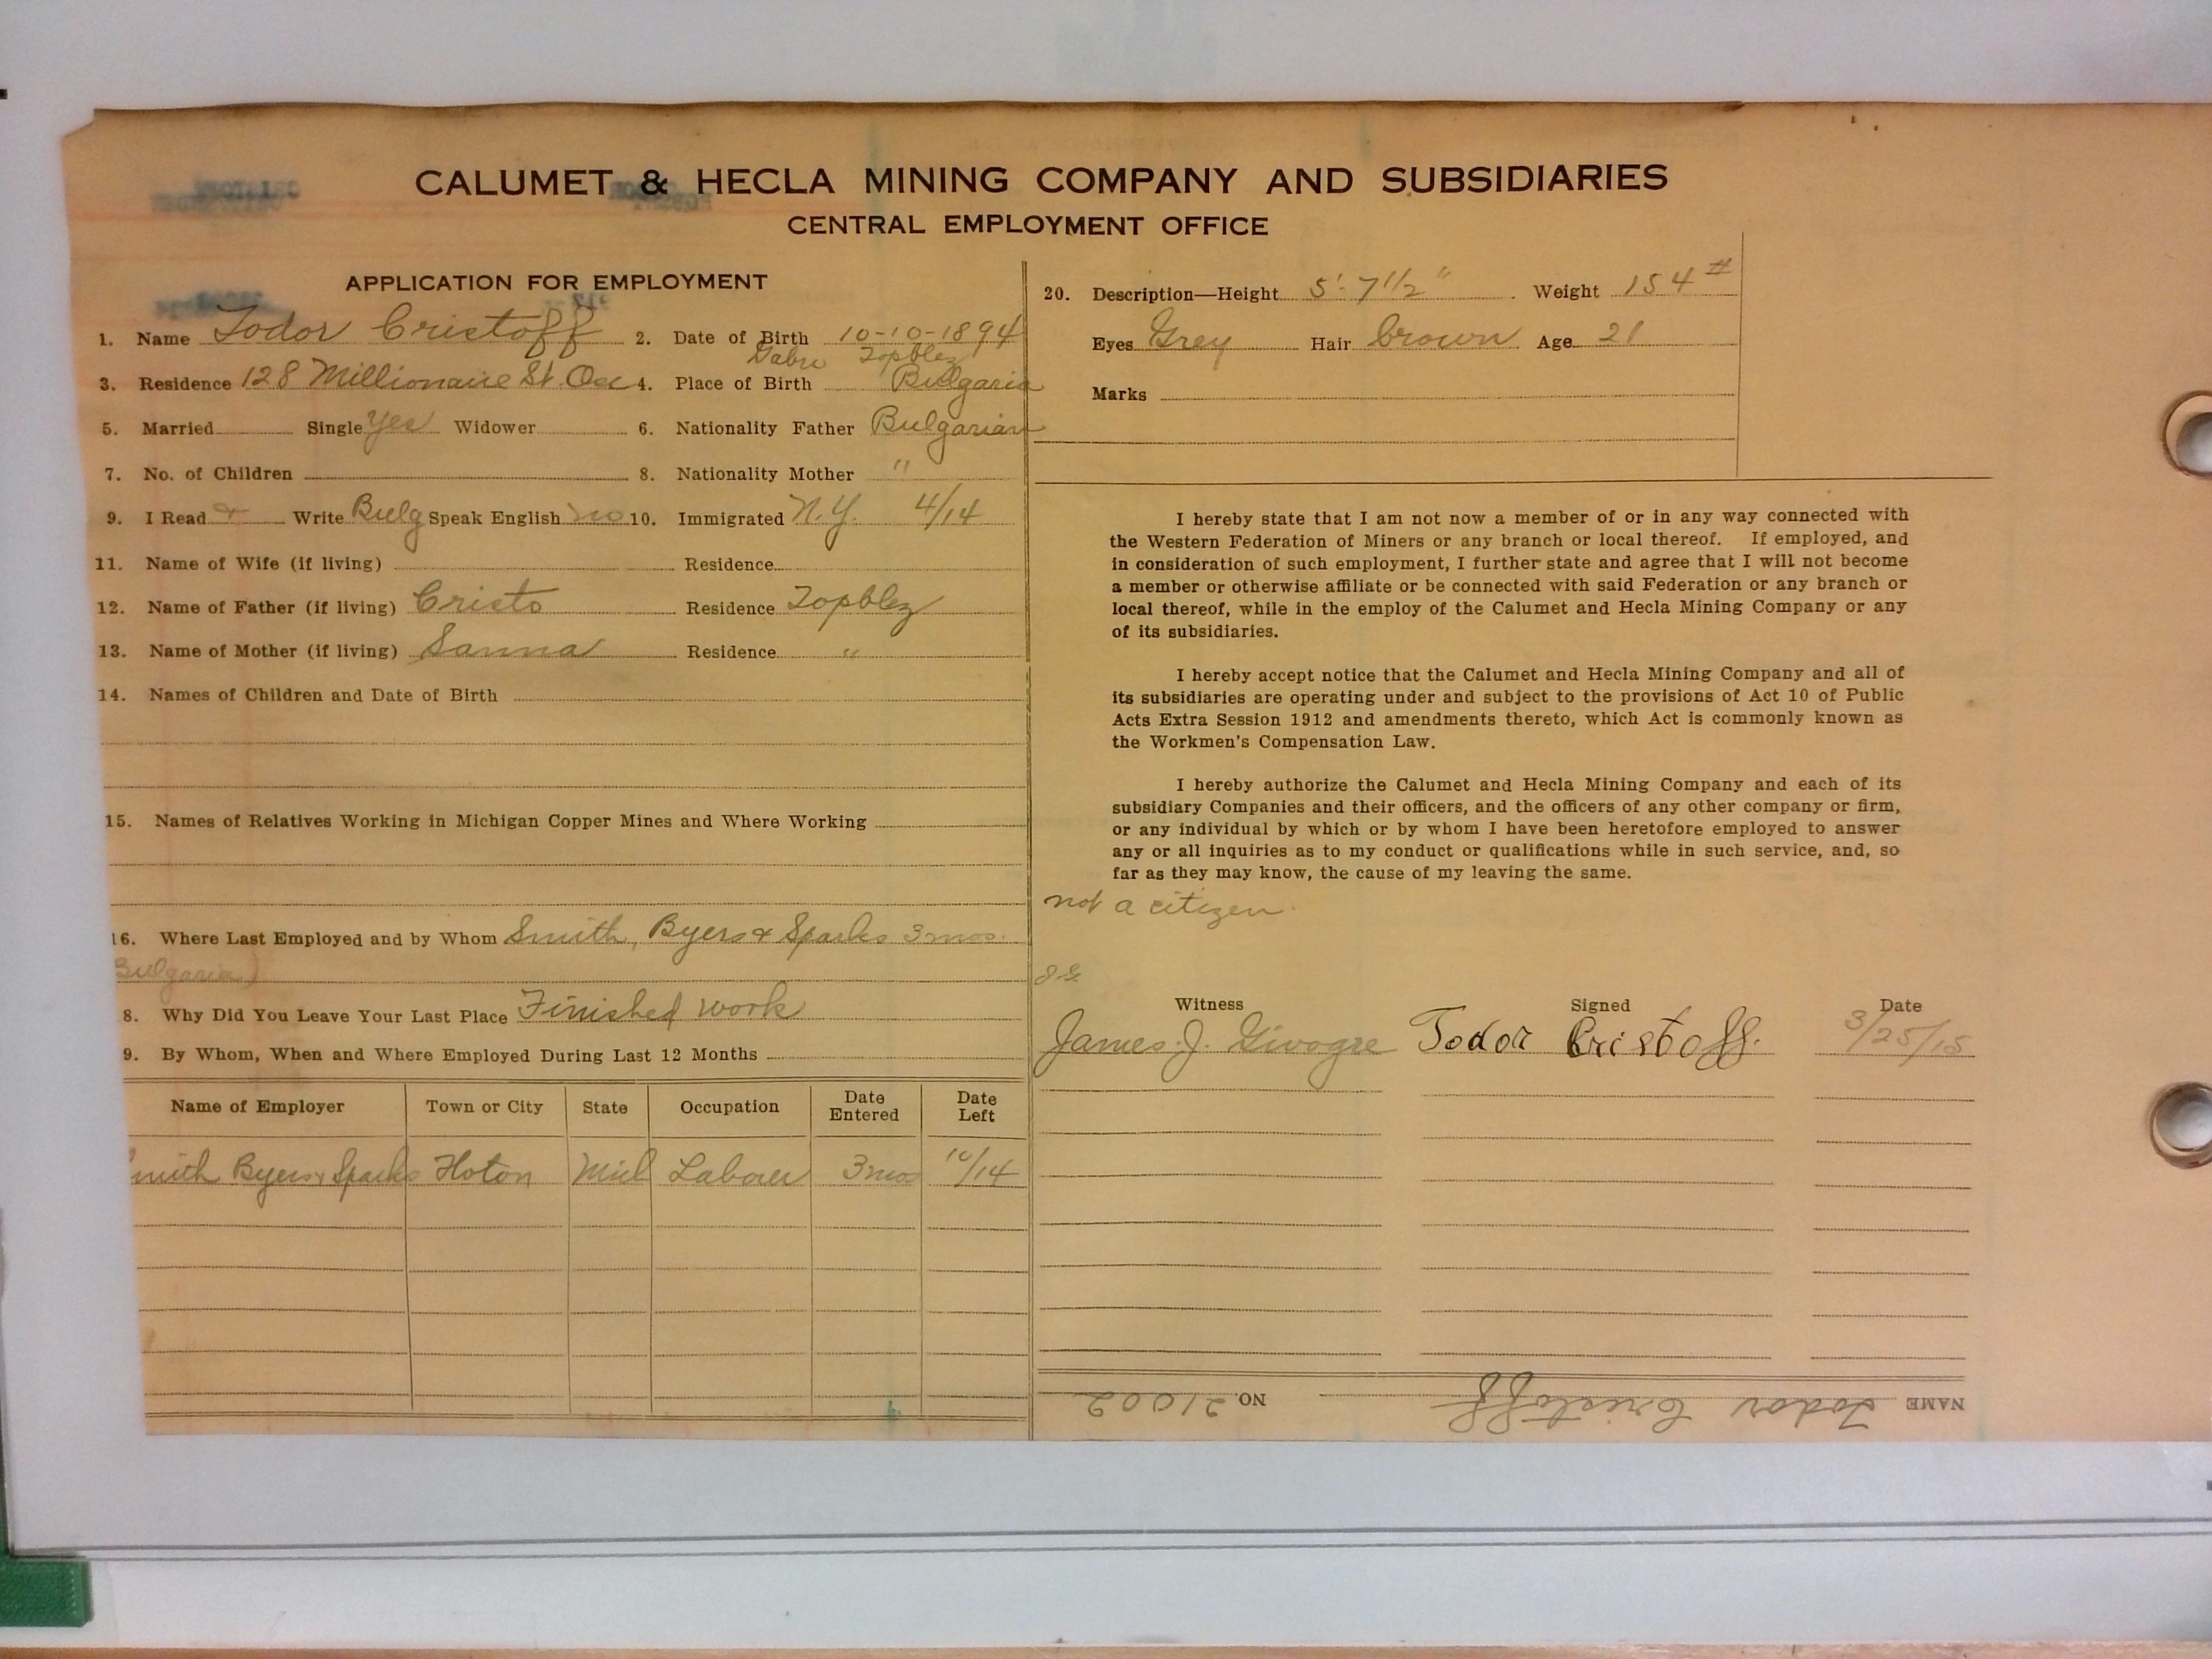 CALUMET & HECLA MINING COMPANY AND SUBSIDIARIES
CENTRAL EMPLOYMENT OFFICE
APPLICATION FOR EMPLOYMENT
1. Name Todor Cristoff 2. Date of Birth 10-10-1894
Gabro Topblez
3. Residence 128 Millionaire St. Osc 4. Place of Birth Bulgaria
5. Married Single Yes Widower 6. Nationality Father Bulgarian
7. No. of Children 8. Nationality Mother "
9. I Read & Write Bulg Speak English no 10. Immigrated N.Y. 4/14
11. Name of Wife (if living) Residence
12. Name of Father (if living) Cristo Residence Topblez
13. Name of Mother (if living) Sanna Residence "
14. Names of Children and Date of Birth
15. Names of Relatives Working in Michigan Copper Mines and Where Working
16. Where Last Employed and by Whom Smith, Byers & Sparks 3 mos.
Bulgaria)
8. Why Did You Leave Your Last Place Finished work
9. By Whom, When and Where Employed During Last 12 Months
Name of Employer Town or City State Occupation Date Entered Date Left
mith Byers & Sparks Hoton Mich Laborer 3 mos 10/14
20. Description—Height 5' 7 1/2" Weight 154 #
Eyes Grey Hair brown Age 21
Marks
I hereby state that I am not now a member of or in any way connected with
the Western Federation of Miners or any branch or local thereof. If employed, and
in consideration of such employment, I further state and agree that I will not become
a member or otherwise affiliate or be connected with said Federation or any branch or
local thereof, while in the employ of the Calumet and Hecla Mining Company or any
of its subsidiaries.
I hereby accept notice that the Calumet and Hecla Mining Company and all of
its subsidiaries are operating under and subject to the provisions of Act 10 of Public
Acts Extra Session 1912 and amendments thereto, which Act is commonly known as
the Workmen's Compensation Law.
I hereby authorize the Calumet and Hecla Mining Company and each of its
subsidiary Companies and their officers, and the officers of any other company or firm,
or any individual by which or by whom I have been heretofore employed to answer
any or all inquiries as to my conduct or qualifications while in such service, and, so
far as they may know, the cause of my leaving the same.
not a citizen
Witness Signed Date
James. J. Givogre Todor Cristoff. 3/25/15
NAME Todor Cristoff NO. 21002